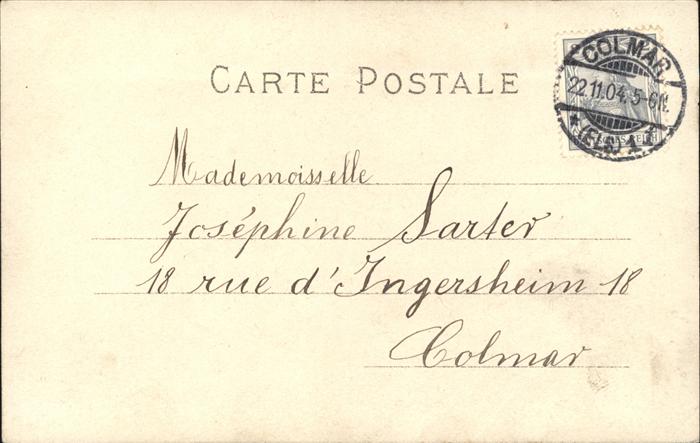 CARTE POSTALE
COLMAR
22.11.04. 5-6N.
* (ELS.) 1
Mademoisselle
Joséphine Sarter
18 rue d'Ingersheim 18
Colmar